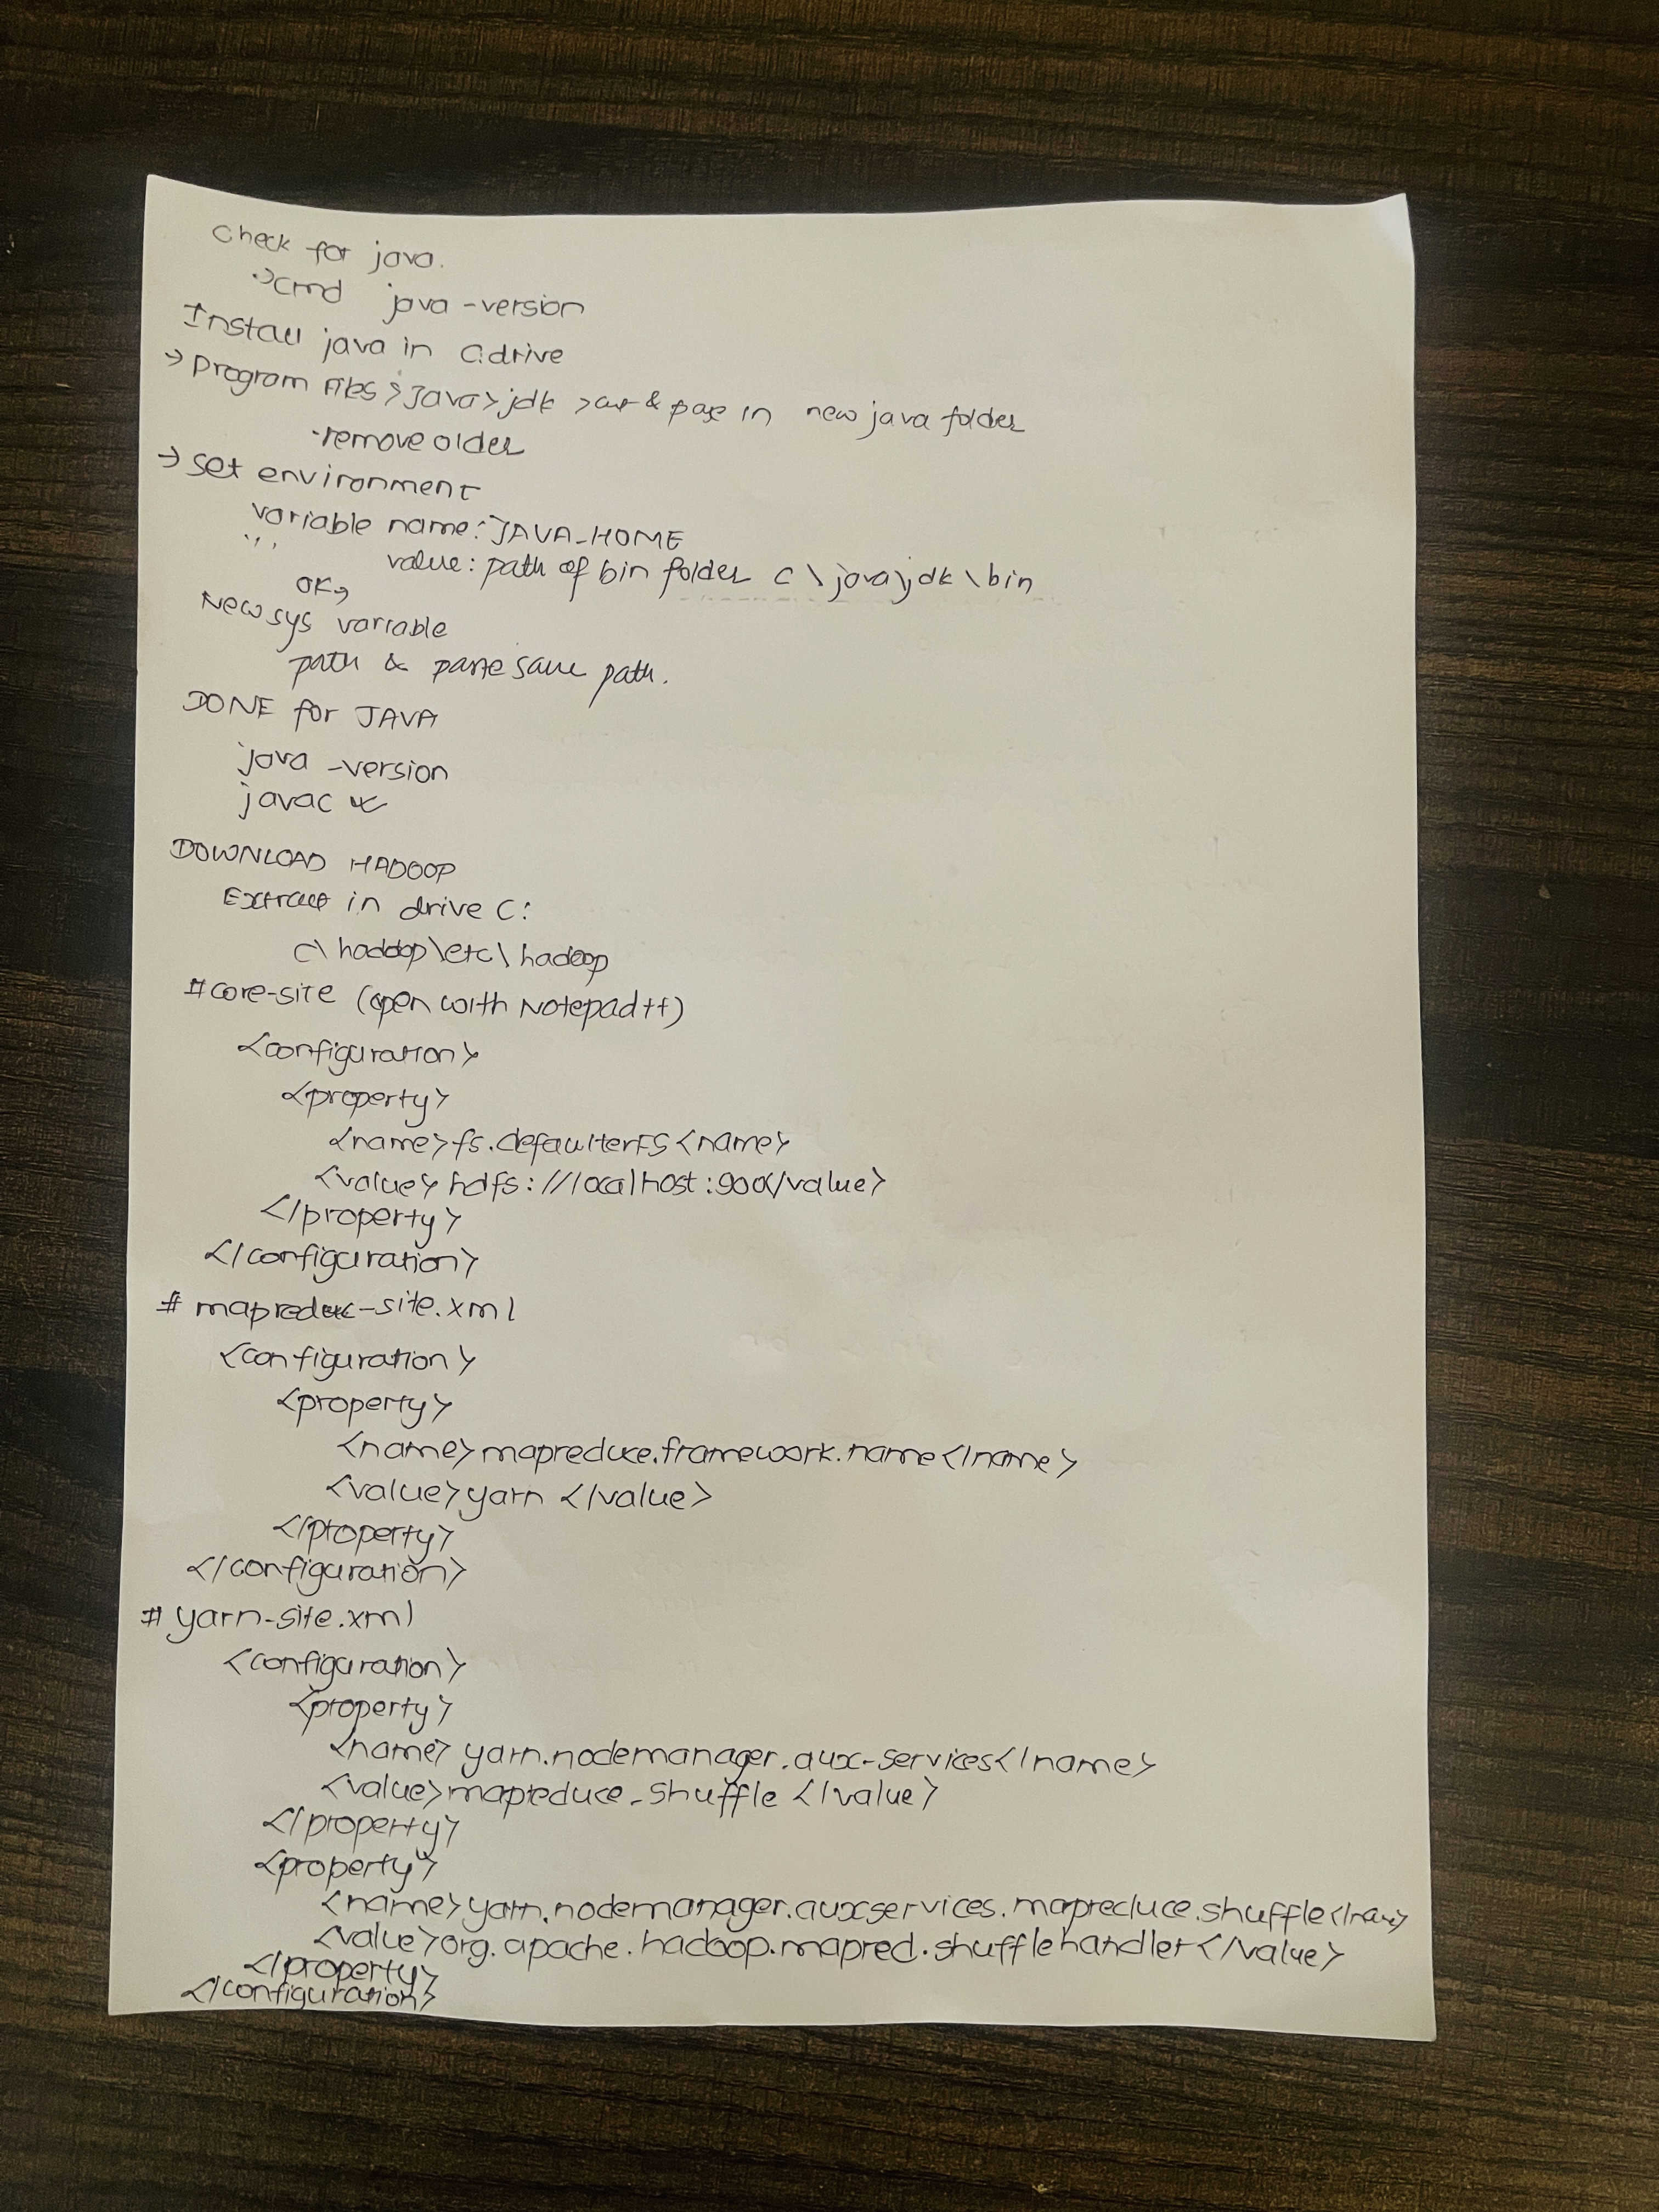 check for java.
->cmd java -version
Install java in C:drive
-> Program Files > Java > jdk > cut & pase in new java folder
-remove older
-> set environment
variable name: JAVA_HOME
value: path of bin folder C\java\jdk\bin
OK,
New sys variable
path & paste same path.
DONE for JAVA
java -version
javac
DOWNLOAD HADOOP
Extract in drive C:
C\ hadoop\etc\ hadoop
#core-site (open with Notepad++)
<configuration>
<property>
<name>fs.defaulterFS<name>
<value> hdfs://localhost:900</value>
</property>
</configuration>
# mapreduc-site.xml
<configuration>
<property>
<name>mapreduce.framework.name</name>
<value>yarn </value>
</property>
</configuration>
# yarn-site.xml
<configuration>
<property>
<name> yarn.nodemanager.aux-services</name>
<value>mapreduce_shuffle </value>
</property>
<property>
<name>yarn.nodemanager.auxservices.mapreduce.shuffle</name>
<value>org.apache.hadoop.mapred.shufflehandler</value>
</property>
</configuration>